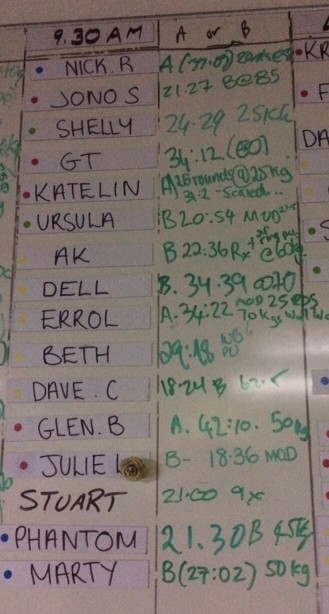 9.30 AM A or B
NICK.R A (37.07)
JONO S 21.27 B@85
SHELLY 24.29 25kg
GT 34:12 (60)
KATELIN A) 26 rounds @ 25kg
3:2 - Scaled..
URSULA B 20:54 MOD
AK B 22:36 Rx @60kg
DELL B. 34.39
ERROL A. 34:22 MOD 25
70 kgs
BETH 29:48
DAVE.C 18:24 B
GLEN.B A. 42:10. 50kg
JULIE L B- 18:36 MOD
STUART 21:00
PHANTOM 21.30B 45kg
MARTY B(27:02) 50kg
KR
F
DA
S